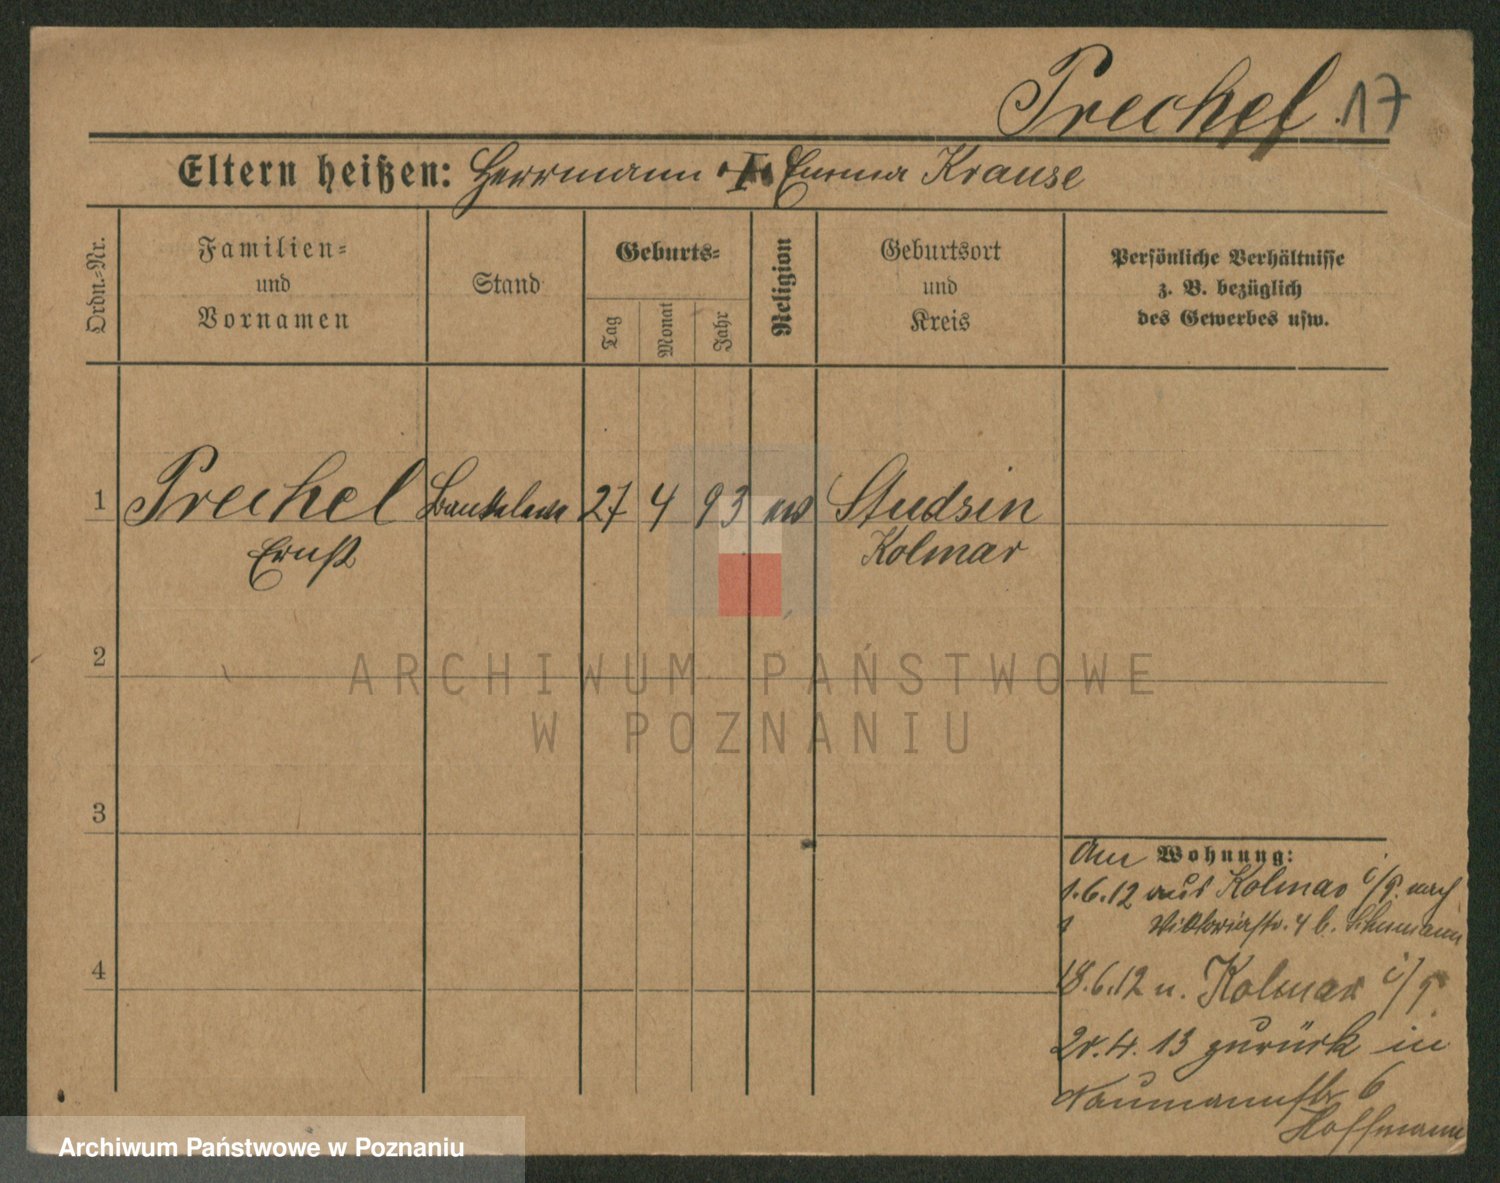 Prechel. 17
Eltern heißen: Herrmann Emma Krause
Ordn.-Nr.
Familien-
und
Vornamen
Stand
Geburts-
Tag
Monat
Jahr
Religion
Geburtsort
und
Kreis
Persönliche Verhältnisse
z. B. bezüglich
des Gewerbes usw.
1 Prechel 27 4 93 ev Studsin
Ernst Kolmar
2
3
4
ARCHIWUM PAŃSTWOWE
W POZNANIU
Am Wohnung:
1.6.12 aus Kolmar i/P. nach
Viktoriastr. 4 b. Schumann
18.6.12 n. Kolmar i/P
4. 13 zurück in
Naumannstr 6
Hoffmann
Archiwum Państwowe w Poznaniu